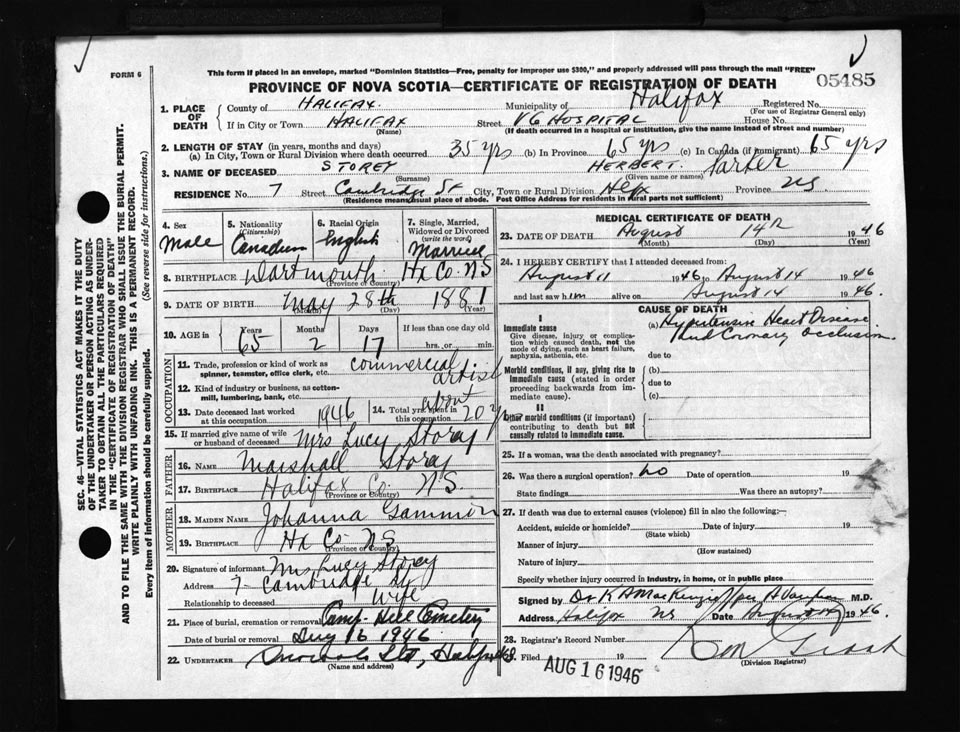 FORM 6
This form if placed in an envelope, marked "Dominion Statistics—Free, penalty for improper use $300," and properly addressed will pass through the mail "FREE"
PROVINCE OF NOVA SCOTIA—CERTIFICATE OF REGISTRATION OF DEATH
05485
1. PLACE OF DEATH
County of HALIFAX. Municipality of Halifax Registered No.
(For use of Registrar General only)
If in City or Town HALIFAX Street VG HOSPITAL House No.
(Name) (If death occurred in a hospital or institution, give the name instead of street and number)
2. LENGTH OF STAY (in years, months and days)
(a) In City, Town or Rural Division where death occurred 35 yrs (b) In Province 65 yrs (c) In Canada (if immigrant) 65 yrs
3. NAME OF DECEASED STOREY HERBERT. Porter
(Surname) (Given name or names)
RESIDENCE No. 7 Street Cambridge St City, Town or Rural Division Hfx Province NS
(Residence means usual place of abode. Post Office Address for residents in rural parts not sufficient)
4. Sex Male
5. Nationality (Citizenship) Canadian
6. Racial Origin English
7. Single, Married, Widowed or Divorced (write the word) Married
8. BIRTHPLACE Dartmouth Hx Co. NS
(Province or Country)
9. DATE OF BIRTH May 28th 1881
(Month) (Day) (Year)
10. AGE in Years 65 Months 2 Days 17 If less than one day old hrs. or min.
OCCUPATION
11. Trade, profession or kind of work as spinner, teamster, office clerk, etc. commercial artist
12. Kind of industry or business, as cotton-mill, lumbering, bank, etc.
13. Date deceased last worked at this occupation 1946
14. Total yrs. spent in this occupation about 20 yrs
15. If married give name of wife or husband of deceased Mrs Lucy Storey
FATHER
16. NAME Marshall Storey
17. BIRTHPLACE Halifax Co. N.S.
(Province or Country)
MOTHER
18. MAIDEN NAME Johanna Gammon
19. BIRTHPLACE Hx Co NS
(Province or Country)
20. Signature of informant Mrs Lucy Storey
Address 7 Cambridge St
Relationship to deceased Wife
21. Place of burial, cremation or removal Camp Hill Cemetery
Date of burial or removal Aug 16 1946
22. UNDERTAKER Snows Ltd, Halifax
(Name and address)
MEDICAL CERTIFICATE OF DEATH
23. DATE OF DEATH August 14th 1946
(Month) (Day) (Year)
24. I HEREBY CERTIFY that I attended deceased from:
August 11 1946 to August 14 1946
and last saw him alive on August 14 1946.
CAUSE OF DEATH
I
Immediate cause
Give disease, injury or complication which caused death, not the mode of dying, such as heart failure, asphyxia, asthenia, etc.
(a) Hypertensive Heart Disease and Coronary Occlusion
due to
Morbid conditions, if any, giving rise to immediate cause (stated in order proceeding backwards from immediate cause).
(b)
due to
(c)
II
Other morbid conditions (if important) contributing to death but not causally related to immediate cause.
25. If a woman, was the death associated with pregnancy?
26. Was there a surgical operation? no Date of operation 19
State findings Was there an autopsy?
27. If death was due to external causes (violence) fill in also the following:
Accident, suicide or homicide? Date of injury 19
(State which)
Manner of injury
(How sustained)
Nature of injury
Specify whether injury occurred in industry, in home, or in public place
Signed by Dr K A MacKenzie per M.D.
Address Halifax NS Date August 14 1946.
28. Registrar's Record Number
Filed AUG 16 1946 19
(Division Registrar)
SEC. 46—VITAL STATISTICS ACT MAKES IT THE DUTY
OF THE UNDERTAKER OR PERSON ACTING AS UNDER-
TAKER TO OBTAIN ALL THE PARTICULARS REQUIRED
IN THE "CERTIFICATE OF REGISTRATION OF DEATH"
AND TO FILE THE SAME WITH THE DIVISION REGISTRAR WHO SHALL ISSUE THE BURIAL PERMIT.
WRITE PLAINLY WITH UNFADING INK. THIS IS A PERMANENT RECORD.
Every item of information should be carefully supplied. (See reverse side for instructions.)